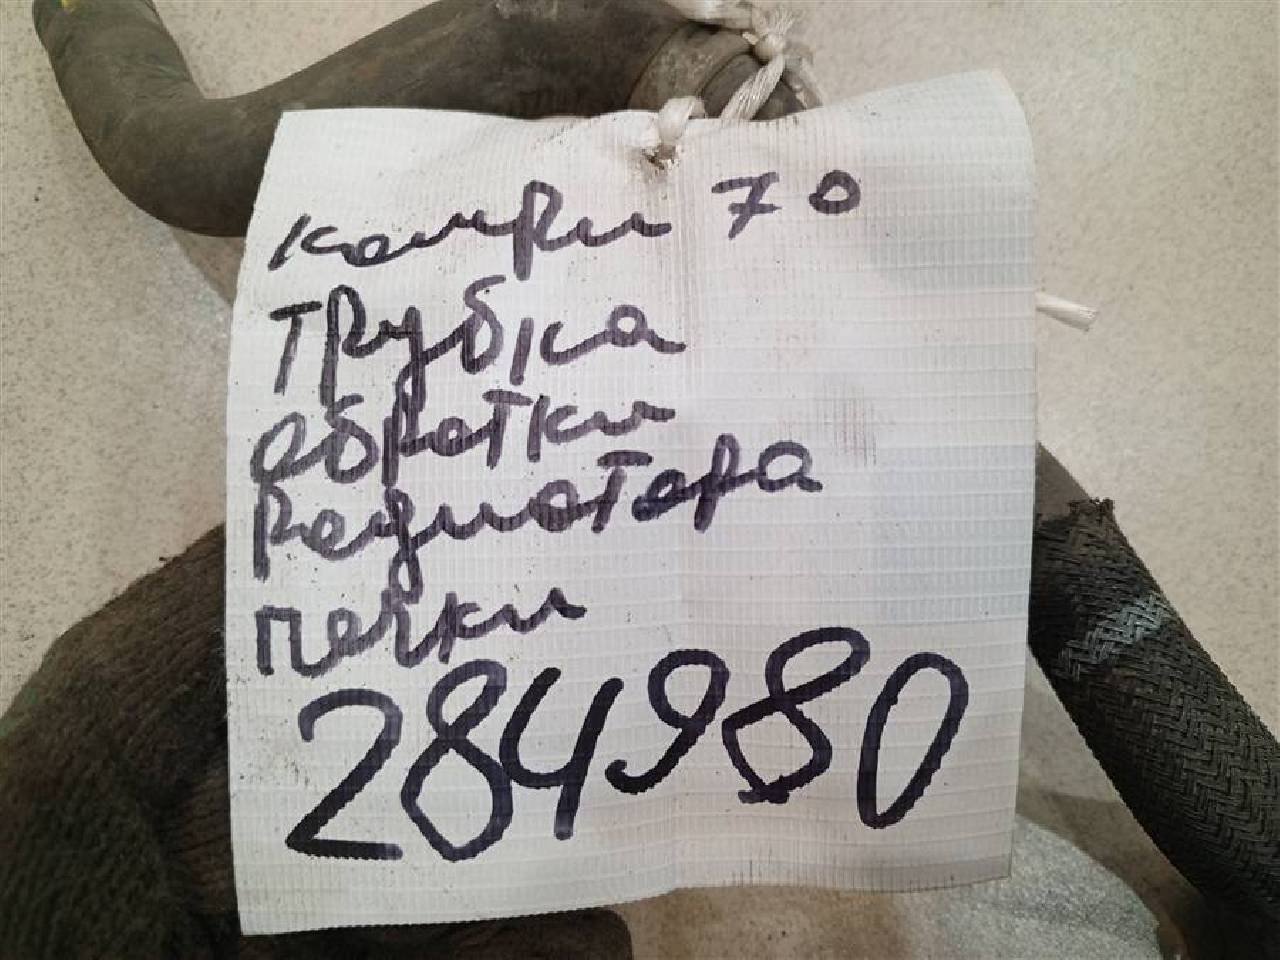 камри 70
трубка
обратки
радиатора
печки
284980